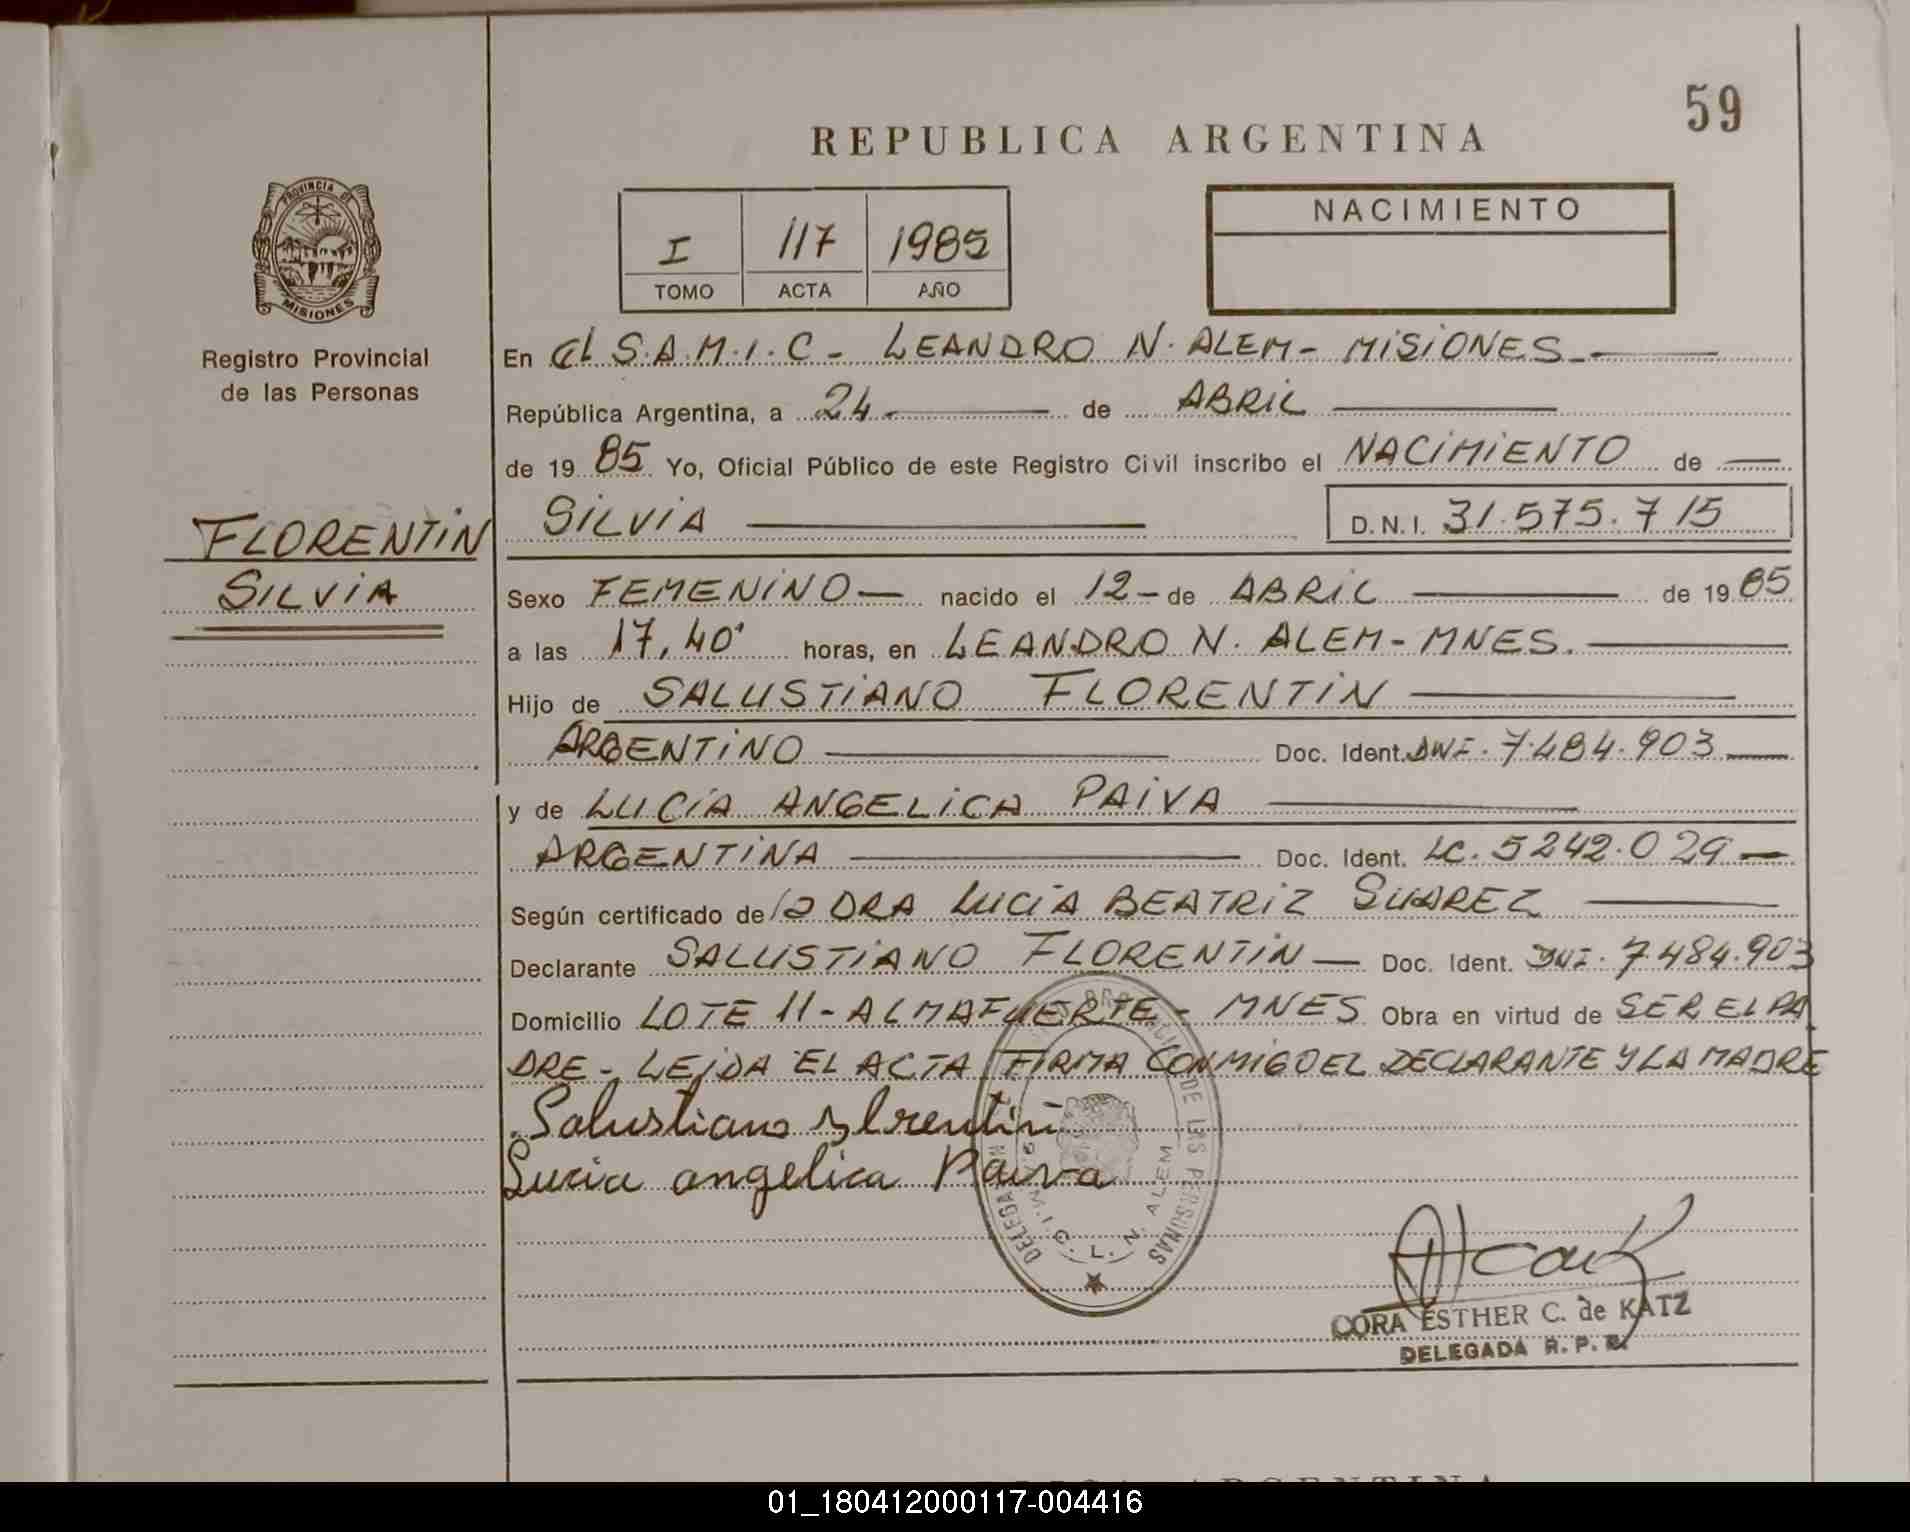 59
REPUBLICA ARGENTINA
PROVINCIA DE
MISIONES
Registro Provincial
de las Personas
I 117 1985
TOMO ACTA AÑO
NACIMIENTO
En el S.A.M.I.C - LEANDRO N. ALEM - MISIONES -
República Argentina, a 24 de ABRIL
de 19 85 Yo, Oficial Público de este Registro Civil inscribo el NACIMIENTO de
SILVIA D.N.I. 31.575.715
FLORENTIN
SILVIA
Sexo FEMENINO nacido el 12 - de ABRIL de 19 85
a las 17,40' horas, en LEANDRO N. ALEM - MNES.
Hijo de SALUSTIANO FLORENTIN
ARGENTINO Doc. Ident. DNI. 7.484.903
y de LUCIA ANGELICA PAIVA
ARGENTINA Doc. Ident. LC. 5242.029
Según certificado de la DRA LUCIA BEATRIZ SUAREZ
Declarante SALUSTIANO FLORENTIN Doc. Ident. DNI. 7.484.903
Domicilio LOTE 11 - ALMAFUERTE - MNES Obra en virtud de SER EL PA
DRE - LEIDA EL ACTA FIRMA CONMIGO EL DECLARANTE Y LA MADRE
Salustiano Florentin
Lucia angelica Paiva
DE LAS PERSONAS
L. N. ALEM
CORA ESTHER C. de KATZ
DELEGADA R. P. P.
01_180412000117-004416